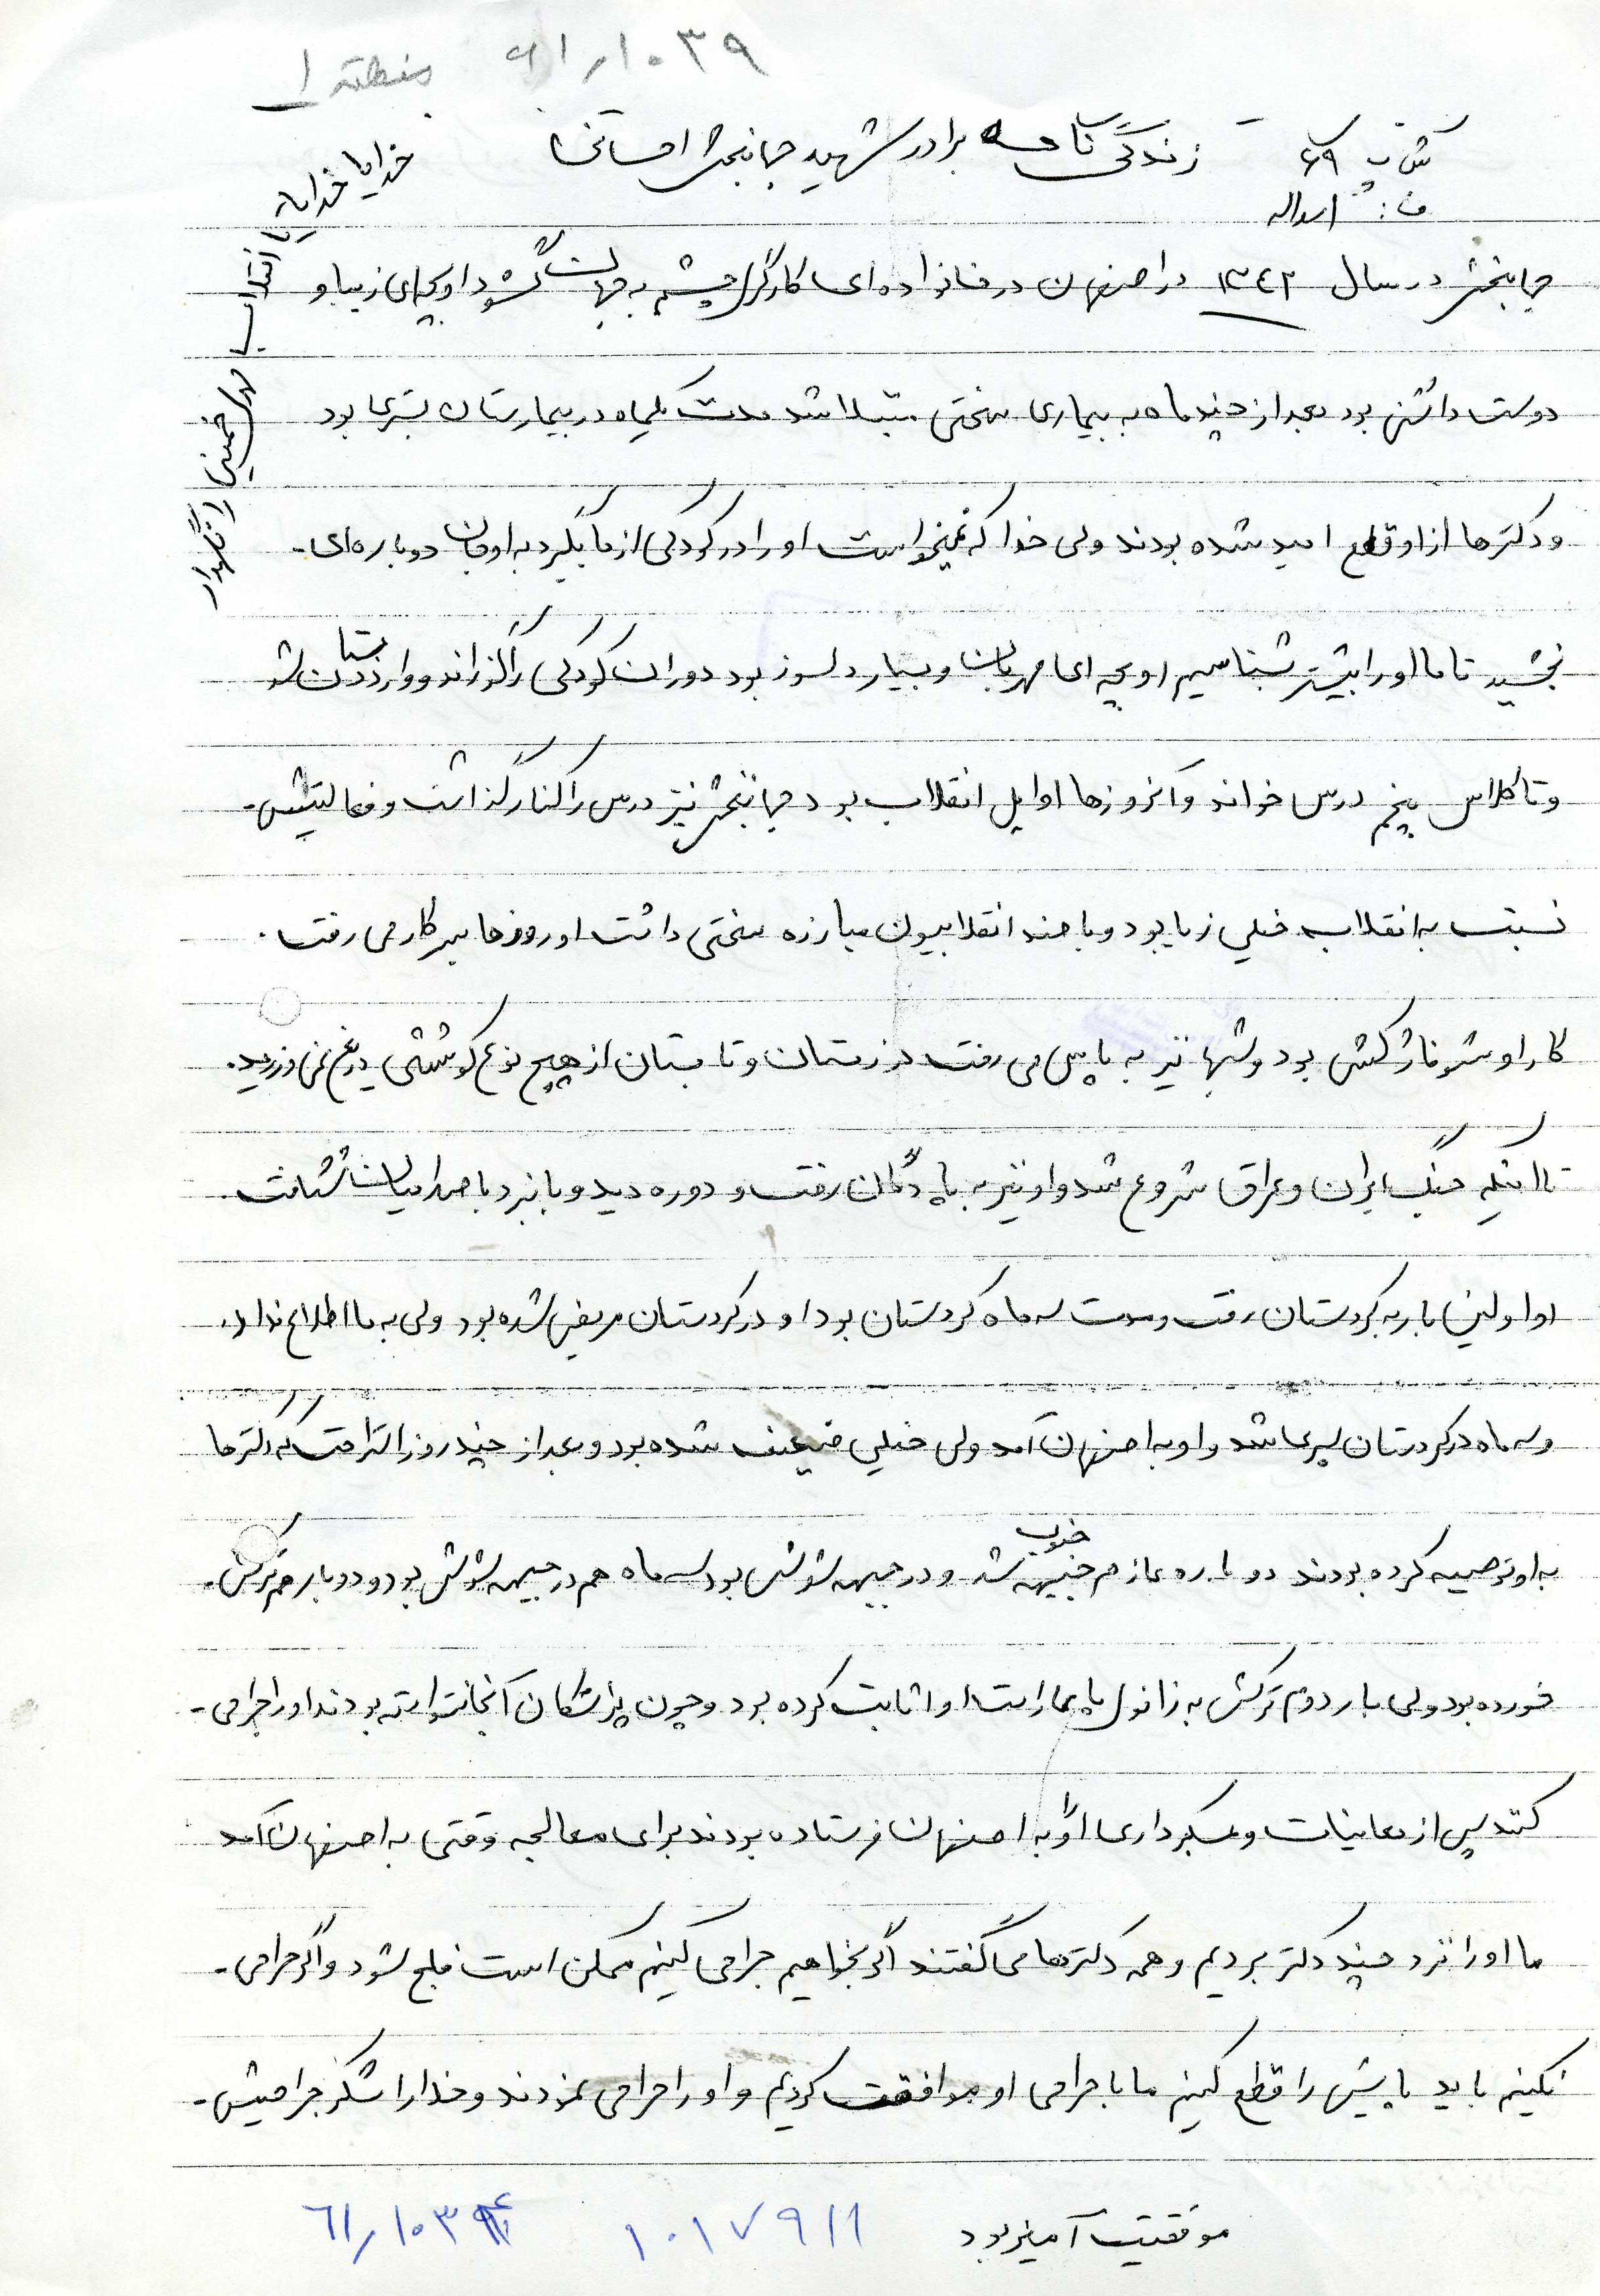 ۶۱٫۱۰۳۹ منطقه ۱
زندگی نامه برادر شهید جهانبخش
ف: اسداله
خدایا خدایا تا انقلاب مهدی خمینی را نگهدار
جهانبخش در سال ۱۳۴۳ در اصفهان در خانواده ای کارگر چشم به جهان گشود او بچه‌ای زیبا و
دوست داشتنی بود بعد از چند ماه به بیماری سختی مبتلا شد مدت یکماه در بیمارستان بستری بود
و دکترها از او قطع امید شده بودند ولی خدا که نمیخواست او را در کودکی از ما بگیرد به او جان دوباره‌ای-
بخشید تا ما او را بیشتر بشناسیم او بچه ای مهربان و بسیار دلسوز بود دوران کودکی را گذراند و وارد دبستان شد
و تا کلاس پنجم درس خواند و آنروزها اوایل انقلاب بود جهانبخش نیز درس را کنار گذاشت و فعالیتش-
نسبت به انقلاب خیلی زیاد بود و با ضد انقلابیون مبارزه سختی داشت او روزها سر کار می رفت.
کار او شوفاژ کشی بود و شبها نیز به پاس می رفت در زمستان و تابستان از هیچ نوع کوششی دریغ نمی ورزید.
تا اینکه جنگ ایران و عراق شروع شد و او نیز به پادگان رفت و دوره دید و به نبرد با صدامیان شتافت.
او اولین بار به کردستان رفت و مدت سه ماه کردستان بود او در کردستان مریض شده بود ولی به ما اطلاع نداد.
و سه ماه در کردستان سپری شد و او به اصفهان آمد ولی خیلی ضعیف شده بود و بعد از چند روز استراحت که دکترها
به او توصیه کرده بودند دوباره عازم جبهه جنوب شد و در جبهه شوش بود سه ماه هم در جبهه شوش بود و دوبار هم ترکش-
خورده بود ولی بار دوم ترکش به زانوی پای راست او اثابت کرده بود و چون پزشکان آنجا نتوانسته بودند او را جراحی-
کنند پس از معاینات و عکسبرداری او را به اصفهان فرستاده بودند برای معالجه وقتی به اصفهان آمد
ما او را نزد چند دکتر بردیم و همه دکترها می گفتند اگر بخواهیم جراحی کنیم ممکن است فلج شود و اگر جراحی-
نکنیم باید پایش را قطع کنیم ما با جراحی او موافقت کردیم و او را جراحی نمودند و خدا را شکر جراحیش-
موفقیت آمیز بود
۱۰۱۷۹۱۱